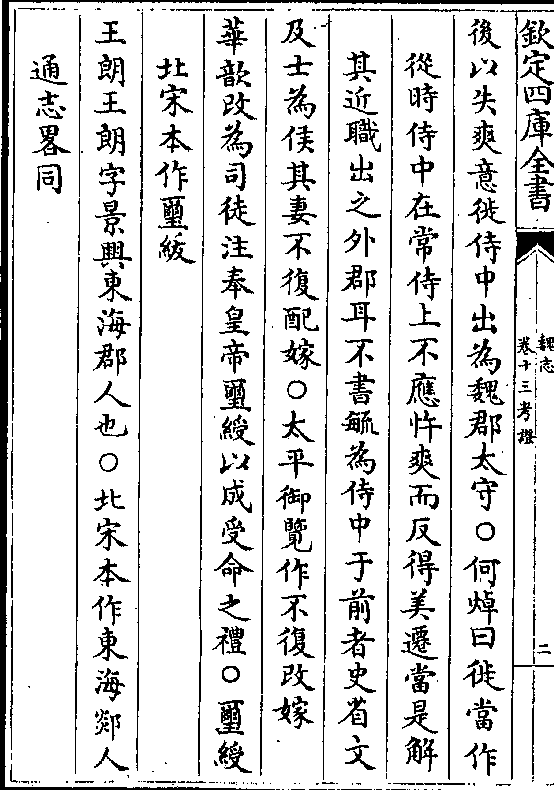 欽定四庫全書
魏志
卷十三考證
二
後以失爽意徙侍中出為魏郡太守○何焯曰徙當作
從時侍中在常侍上不應忤爽而反得美遷當是解
其近職出之外郡耳不書毓為侍中于前者史省文
及士為侯其妻不復配嫁○太平御覽作不復改嫁
華歆改為司徒注奉皇帝璽綬以成受命之禮○璽綬
北宋本作璽紱
王朗王朗字景興東海郡人也○北宋本作東海郯人
通志畧同